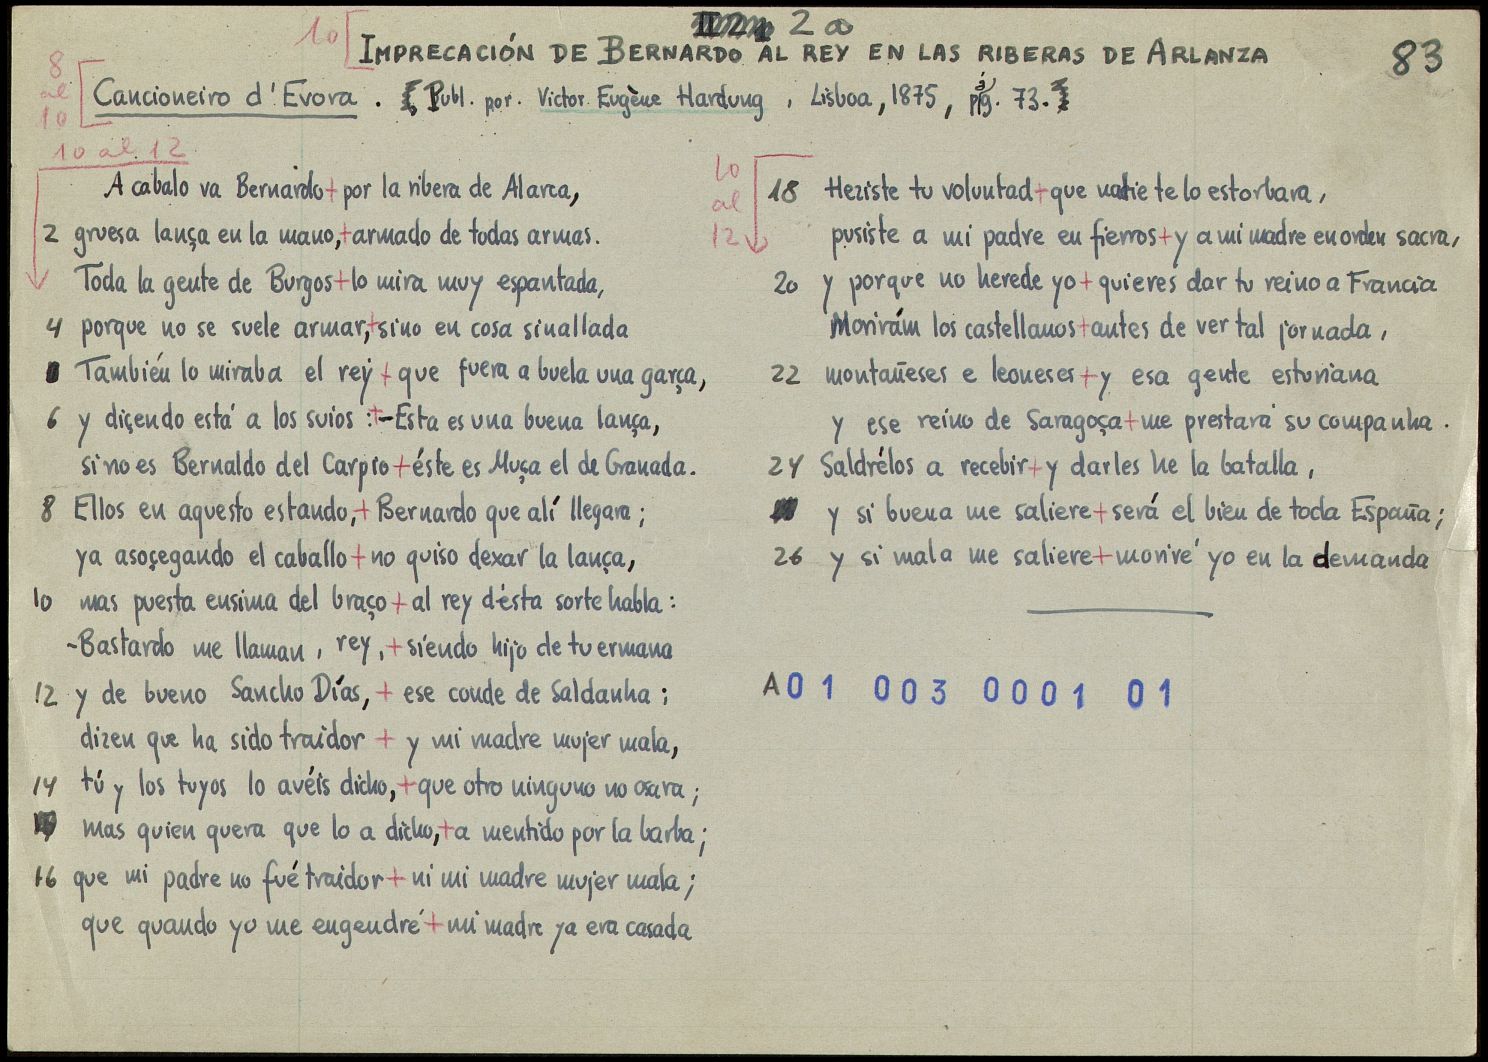 2a
10 IMPRECACIÓN DE BERNARDO AL REY EN LAS RIBERAS DE ARLANZA
83
8 al 10
Cancioneiro d'Evora. [Publ. por. Victor Eugène Hardung, Lisboa, 1875, pág. 73.]
10 al 12
A cabalo va Bernardo + por la ribera de Alarca,
2 gruesa lança en la mano, + armado de todas armas.
Toda la gente de Burgos + lo mira muy espantada,
4 porque no se suele armar, + sino en cosa sinallada
También lo miraba el rey + que fuera a buela una garça,
6 y diçendo está a los suios : + -Esta es una buena lança,
si no es Bernaldo del Carpio + éste es Muça el de Granada.
8 Ellos en aquesto estando, + Bernardo que alí llegara ;
ya asoçegando el caballo + no quiso dexar la lança,
10 mas puesta ensima del braço + al rey d'ésta sorte habla :
-Bastardo me llaman, rey, + siendo hijo de tu ermana
12 y de bueno Sancho Días, + ese conde de Saldanha ;
dizen que ha sido traidor + y mi madre mujer mala,
14 tú y los tuyos lo avéis dicho, + que otro ninguno no osara ;
mas quien quera que lo a dicho, + a mentido por la barba ;
16 que mi padre no fué traidor + ni mi madre mujer mala ;
que quando yo me engendré + mi madre ya era casada
10 al 12
18 Heziste tu voluntad + que nadie te lo estorbara,
pusiste a mi padre en fierros + y a mi madre en orden sacra,
20 y porque no herede yo + quieres dar tu reino a Francia
Morirám los castellanos + antes de ver tal jornada,
22 montañeses e leoneses + y esa gente esturiana
y ese reino de Saragoça + me prestará su companha.
24 Saldrélos a recebir + y darles he la batalla,
y si buena me saliere + será el bien de toda España ;
26 y si mala me saliere + moriré yo en la demanda
A01 003 0001 01